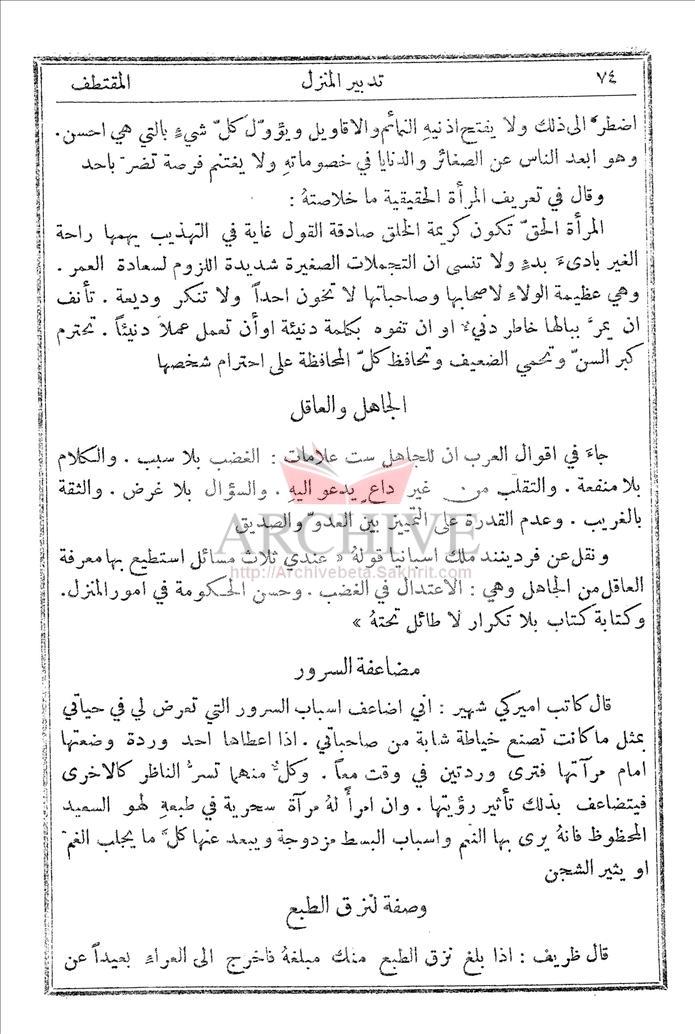 ٧٤ تدبير المنزل المقتطف
اضطرَّ الى ذلك ولا يفتح اذنيهِ النمائم والاقاويل ويؤوّل كلّ شيءٍ بالتي هي احسن .
وهو ابعد الناس عن الصغائر والدنايا في خصوماتهِ ولا يغتنم فرصة تضرّ باحد
وقال في تعريف المرأة الحقيقية ما خلاصتهُ :
المرأة الحقّ تكون كريمة الخلق صادقة القول غاية في التهذيب يهمها راحة
الغير بادىءَ بدءٍ ولا تنسى ان التجملات الصغيرة شديدة اللزوم لسعادة العمر .
وهي عظيمة الولاءِ لاصحابها وصاحباتها لا تخون احداً ولا تنكر وديعة . تأنف
ان يمرَّ ببالها خاطر دنيءٌ او ان تفوه بكلمة دنيئة او أن تعمل عملاً دنيئاً . تحترم
كبر السنّ وتحمي الضعيف وتحافظ كلّ المحافظة على احترام شخصها
الجاهل والعاقل
جاءَ في اقوال العرب ان للجاهل ست علامات : الغضب بلا سبب . والكلام
بلا منفعة . والتقلب من غير داعٍ يدعو اليهِ . والسؤال بلا غرض . والثقة
بالغريب . وعدم القدرة على التمييز بين العدوّ والصديق
ARCHIVE
ونقل عن فردينند ملك اسبانيا قولهُ « عندي ثلاث مسائل استطيع بها معرفة
http://Archivebeta.Sakhrit.com
العاقل من الجاهل وهي : الاعتدال في الغضب . وحسن الحكومة في امور المنزل .
وكتابة كتاب بلا تكرار لا طائل تحتهُ »
مضاعفة السرور
قال كاتب اميركي شهير : اني اضاعف اسباب السرور التي تعرض لي في حياتي
بمثل ما كانت تصنع خياطة شابة من صاحباتي . اذا اعطاها احد وردة وضعتها
امام مرآتها فترى وردتين في وقت معاً . وكلٌّ منهما تسرُّ الناظر كالاخرى
فيتضاعف بذلك تأثير رؤيتها . وان امرأً لهُ مرآة سحرية في طبعهِ لهو السعيد
المحظوظ فانهُ يرى بها النعم واسباب البسط مزدوجة ويبعد عنها كلَّ ما يجلب الغمّ
او يثير الشجن
وصفة لنزق الطبع
قال ظريف : اذا بلغ نزق الطبع منك مبلغهُ فاخرج الى العراءِ بعيداً عن